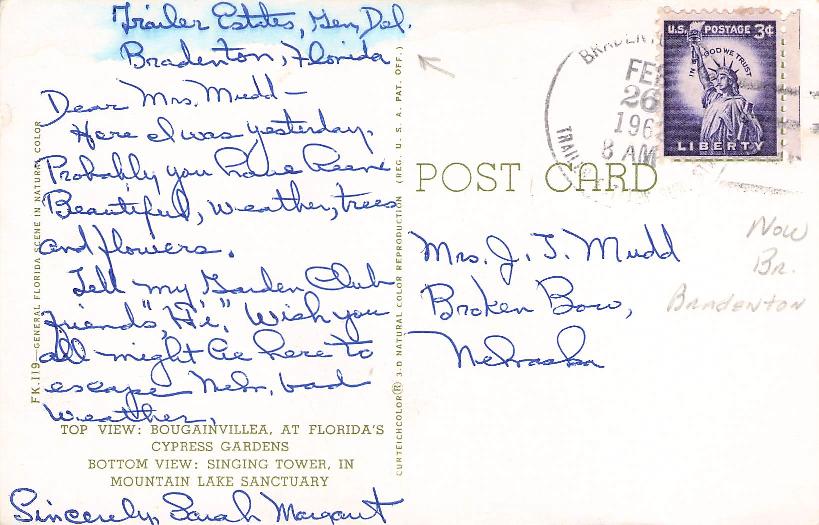 Trailer Estates, Gen. Del.
Bradenton, Florida
Dear Mrs. Mudd —
Here I was yesterday.
Probably you have been.
Beautiful, weather, trees
and flowers.
Tell my Garden Club
friends, "Hi". Wish you
all might be here to
escape Nebr. bad
weather.
TOP VIEW: BOUGAINVILLEA, AT FLORIDA'S
CYPRESS GARDENS
BOTTOM VIEW: SINGING TOWER, IN
MOUNTAIN LAKE SANCTUARY
Sincerely, Sarah Margaret
FK.119—GENERAL FLORIDA SCENE IN NATURAL COLOR
CURTEICHCOLOR® 3-D NATURAL COLOR REPRODUCTION (REG. U. S. A. PAT. OFF.)
POST CARD
FEB
26
196
8 AM
U.S. POSTAGE 3¢
IN GOD WE TRUST
LIBERTY
Mrs. J. T. Mudd
Broken Bow,
Nebraska
Now
Br.
Bradenton